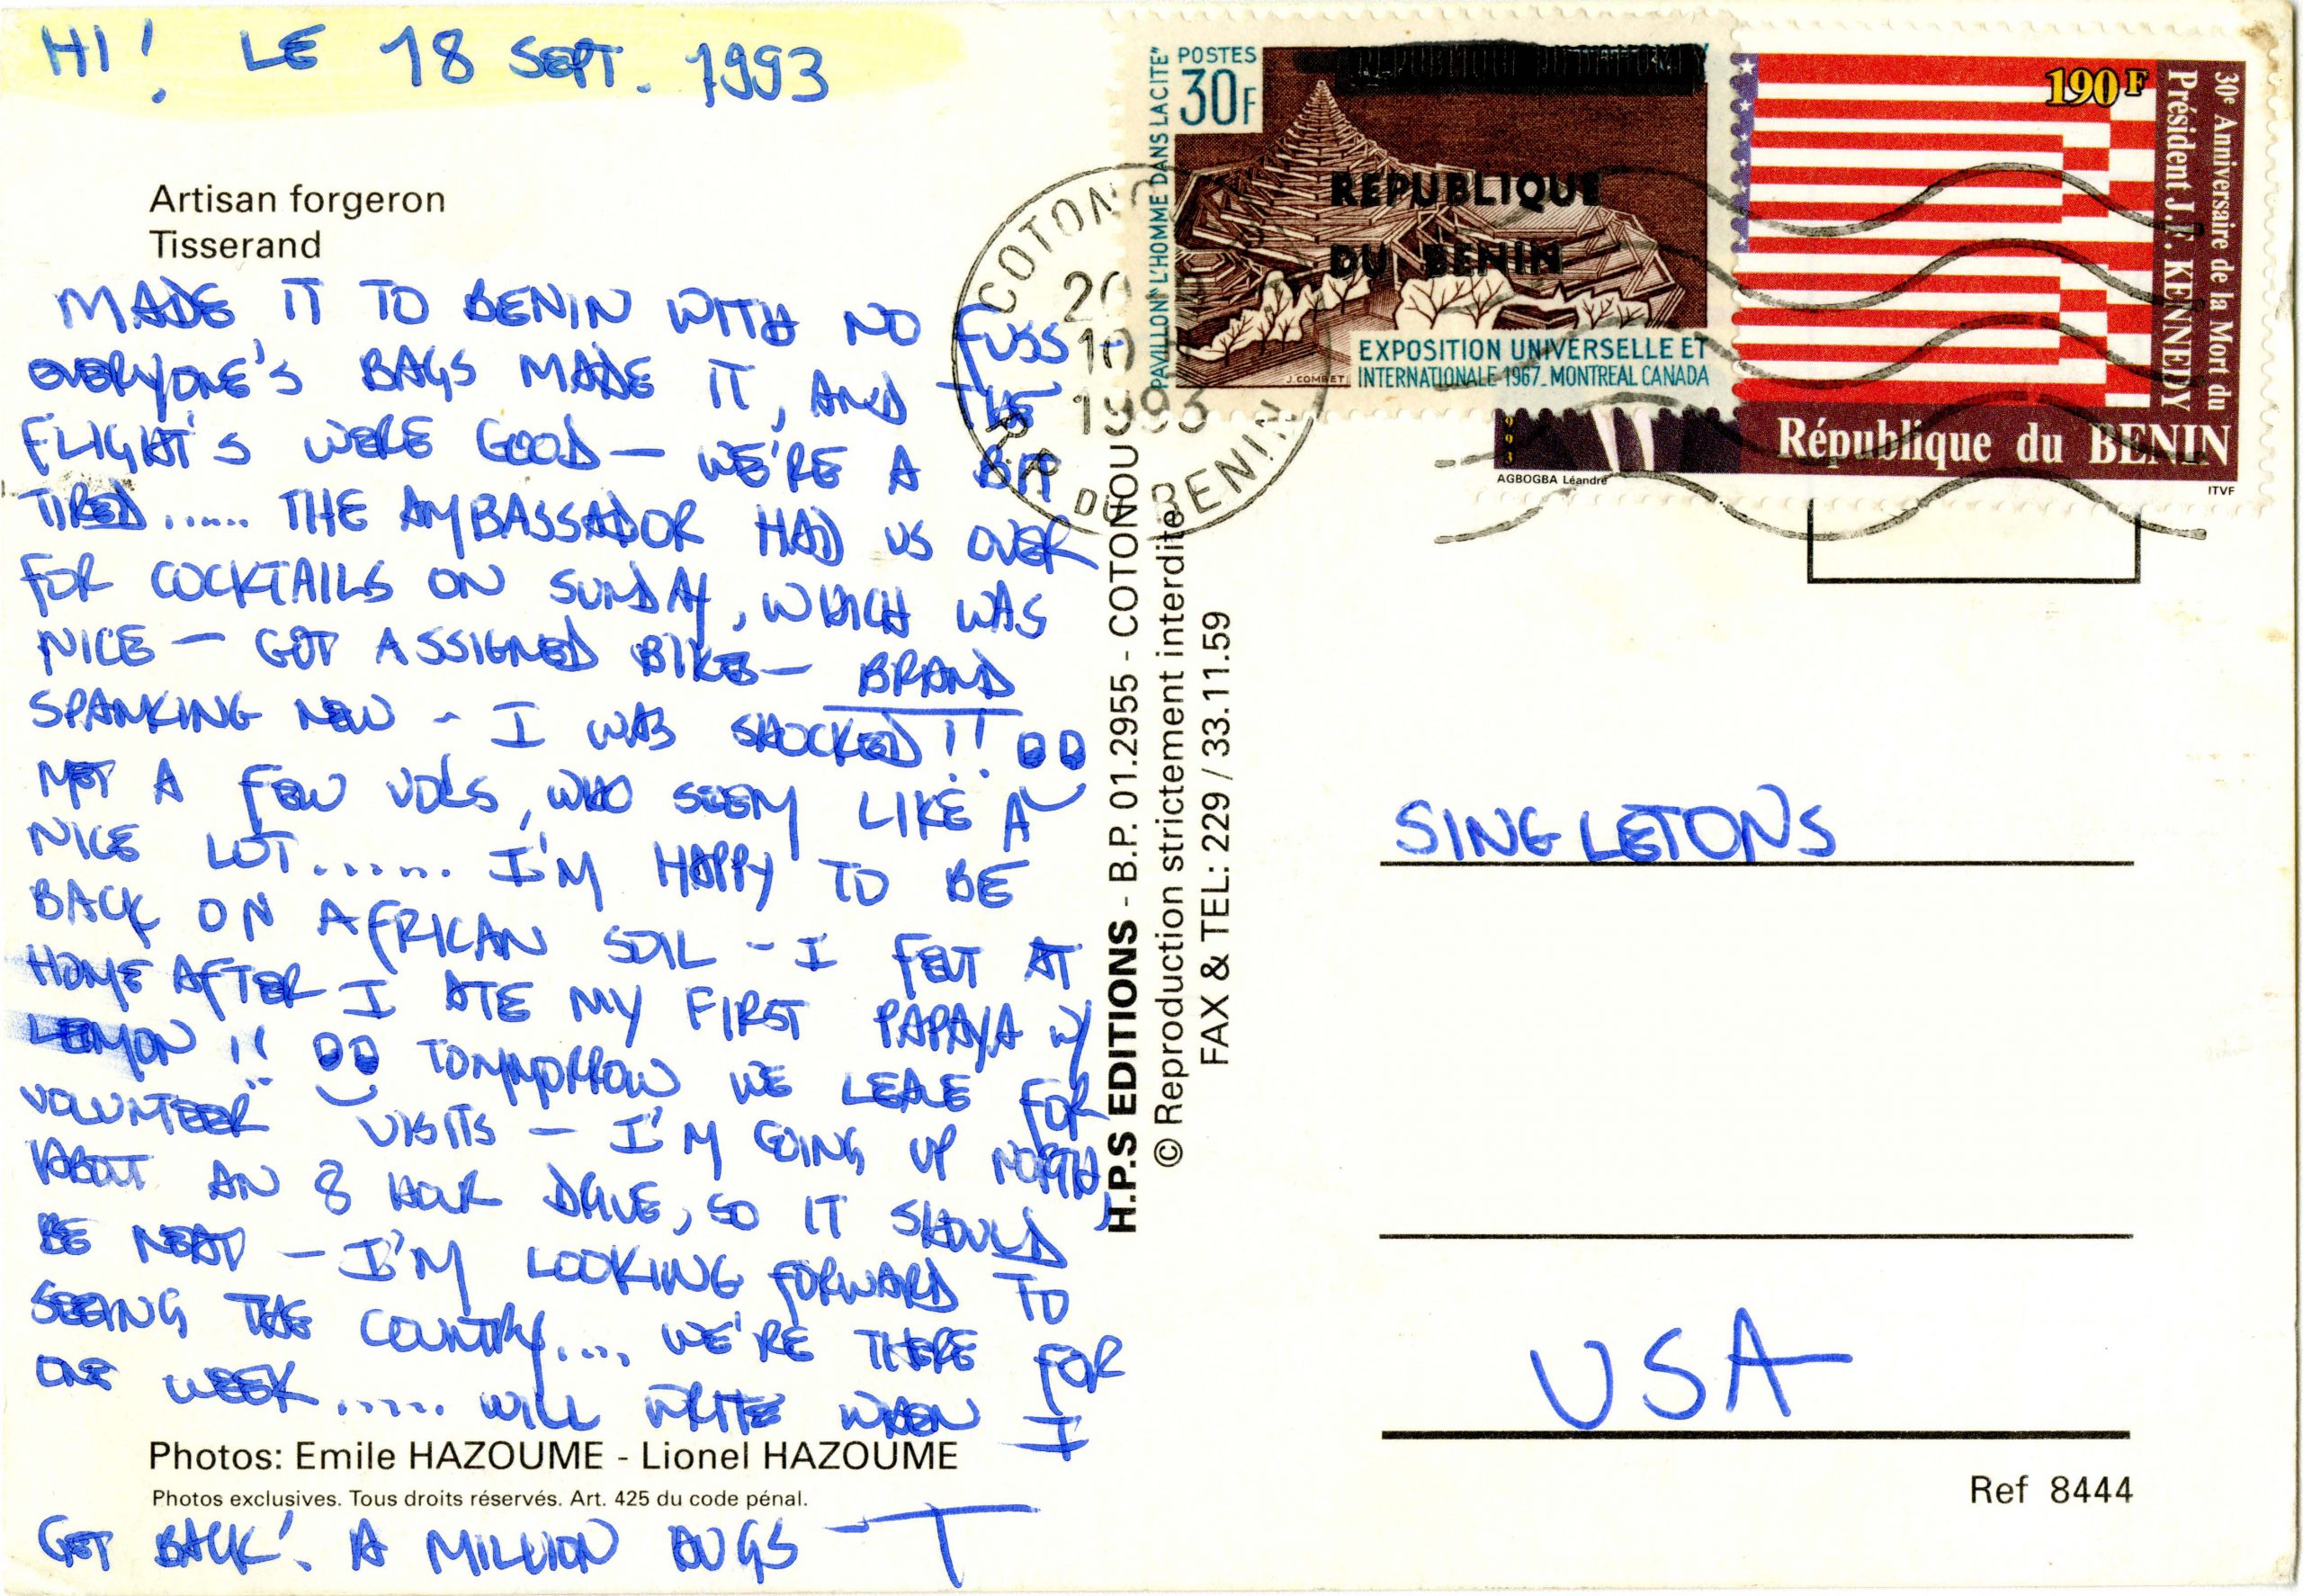 HI! LE 18 SEPT. 1993
Artisan forgeron
Tisserand
MADE IT TO BENIN WITH NO FUSS -
EVERYONE'S BAGS MADE IT, AND THE
FLIGHT'S WERE GOOD — WE'RE A BIT
TIRED...... THE AMBASSADOR HAD US OVER
FOR COCKTAILS ON SUNDAY, WHICH WAS
NICE — GOT ASSIGNED BIKES — BRAND
SPANKING NEW - I WAS SHOCKED!!
MET A FEW VOLS, WHO SEEM LIKE A
NICE LOT...... I'M HAPPY TO BE
BACK ON AFRICAN SOIL - I FELT AT
HOME AFTER I ATE MY FIRST PAPAYA W/
LEMON!! TOMMORROW WE LEAVE FOR
VOLUNTEER VISITS — I'M GOING UP NORTH,
ABOUT AN 8 HOUR DRIVE, SO IT SHOULD
BE NEAT — I'M LOOKING FORWARD TO
SEEING THE COUNTRY.... WE'RE THERE FOR
ONE WEEK..... WILL WRITE WHEN I
Photos: Emile HAZOUME - Lionel HAZOUME
Photos exclusives. Tous droits réservés. Art. 425 du code pénal.
GET BACK! A MILLION HUGS — T
H.P.S EDITIONS - B.P. 01.2955 - COTONOU
© Reproduction strictement interdite
FAX & TEL: 229 / 33.11.59
POSTES
30F
PAVILLON "L'HOMME DANS LA CITE"
REPUBLIQUE
DU BENIN
EXPOSITION UNIVERSELLE ET
INTERNATIONALE 1967_MONTREAL CANADA
J.COMBET
190 F
30e Anniversaire de la Mort du
Président J.F. KENNEDY
République du BENIN
1993
AGBOGBA Léandre
ITVF
COTONOU
1993
R.P. DU BENIN
SINGLETONS
USA
Ref 8444